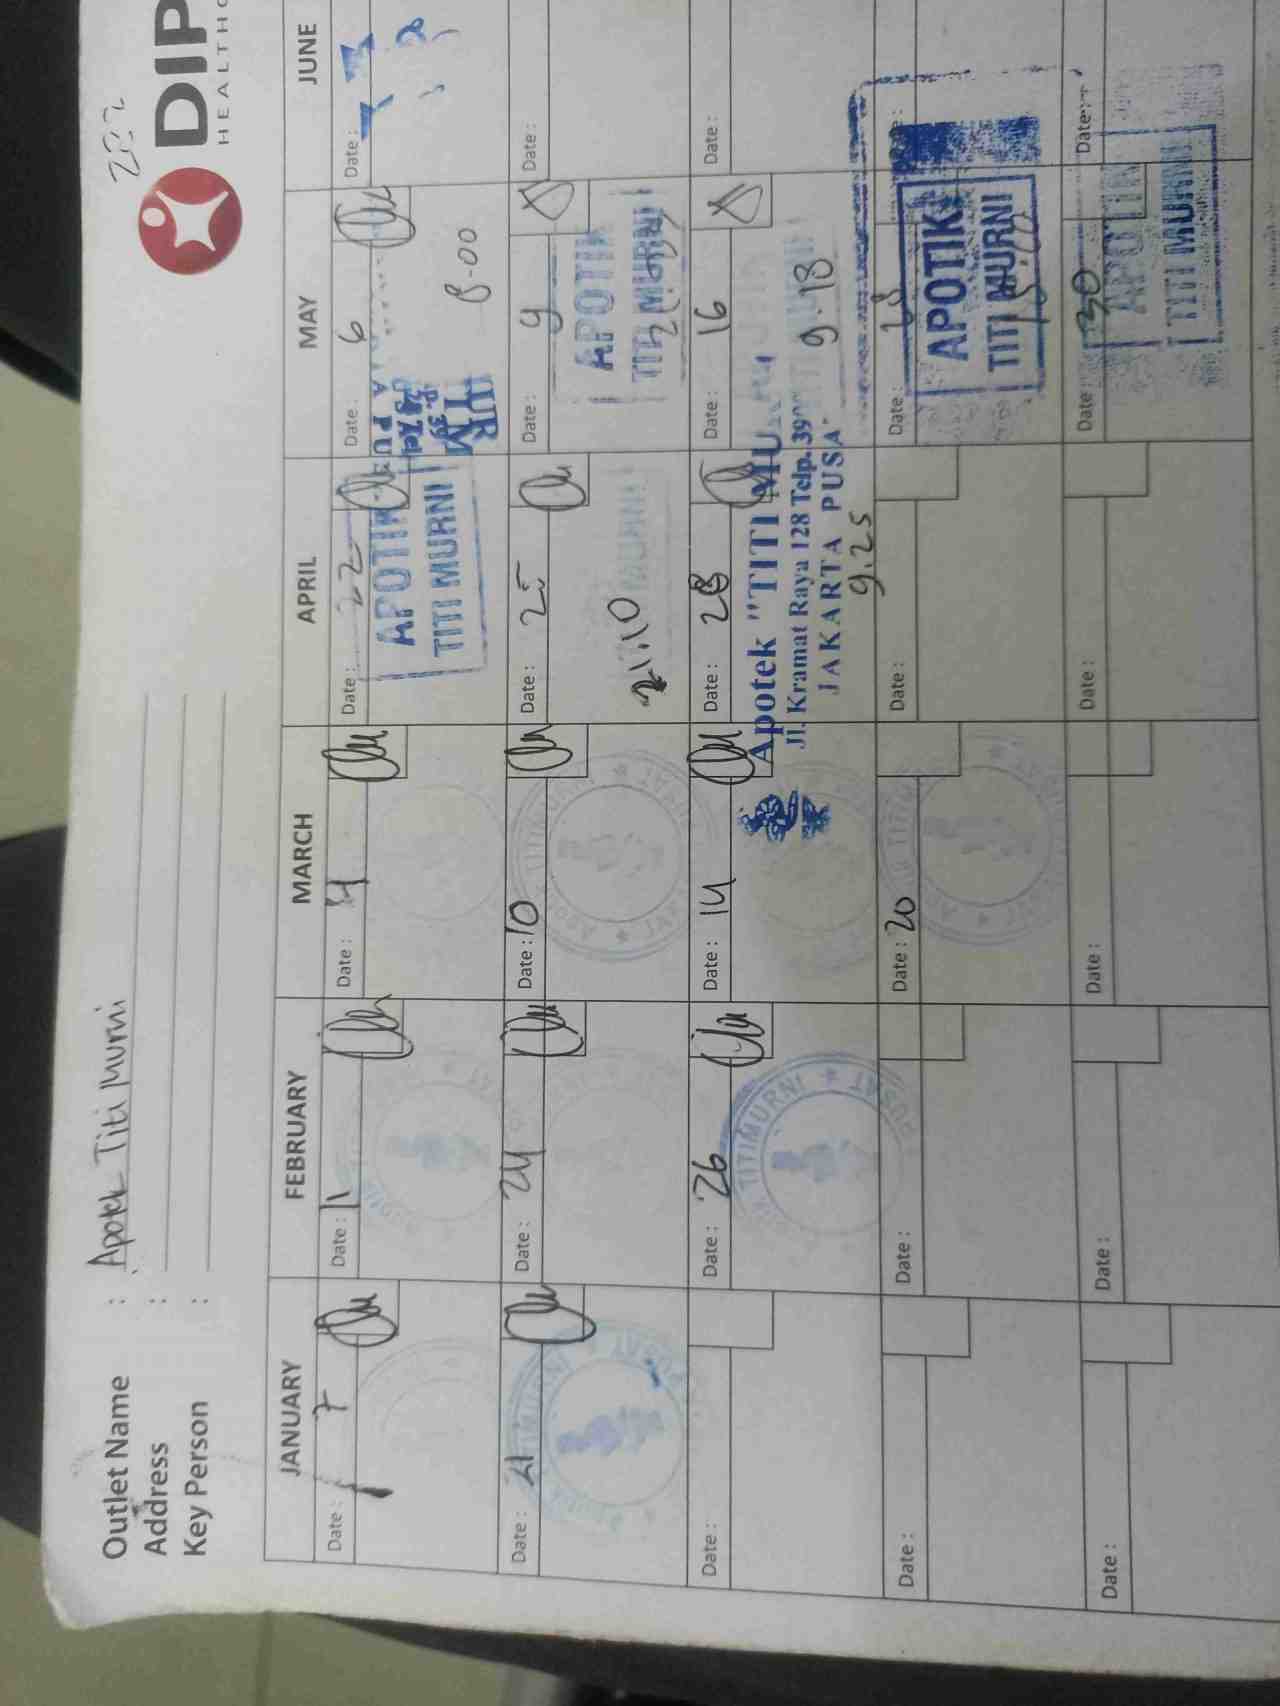 DIP
HEALTHC
Outlet Name : Apotek Titi Murni
Address :
Key Person :
JANUARY FEBRUARY MARCH APRIL MAY JUNE
Date : 7 Date : 11 Date : 4 Date : 22 Date : 6 Date :
APOTIK
TITI MURNI
8-00
Date : 21 Date : 24 Date : 10 Date : 25 Date : 9 Date :
TITIMURNI
PUSAT
21.10
MURNI
APOTIK
TITI MURNI
Date : Date : 26 Date : 14 Date : 28 Date : 16 Date :
TITIMURNI
PUSAT
Apotek "TITI MU
Jl. Kramat Raya 128 Telp. 390
JAKARTA PUSA
9.25
9.18
Date : Date : Date : 20 Date : Date :
APOTIK
TITI MURNI
Date : Date : Date : Date : Date : 30 Date :
APOTIK
TITI MURNI